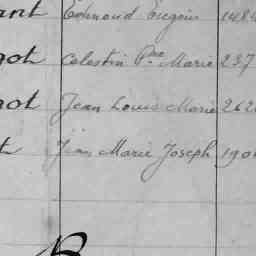 ant Edmond Eugène 148
not Celestin Pre Marie 237
not Jean Louis Marie 262
t Jean Marie Joseph 190
B